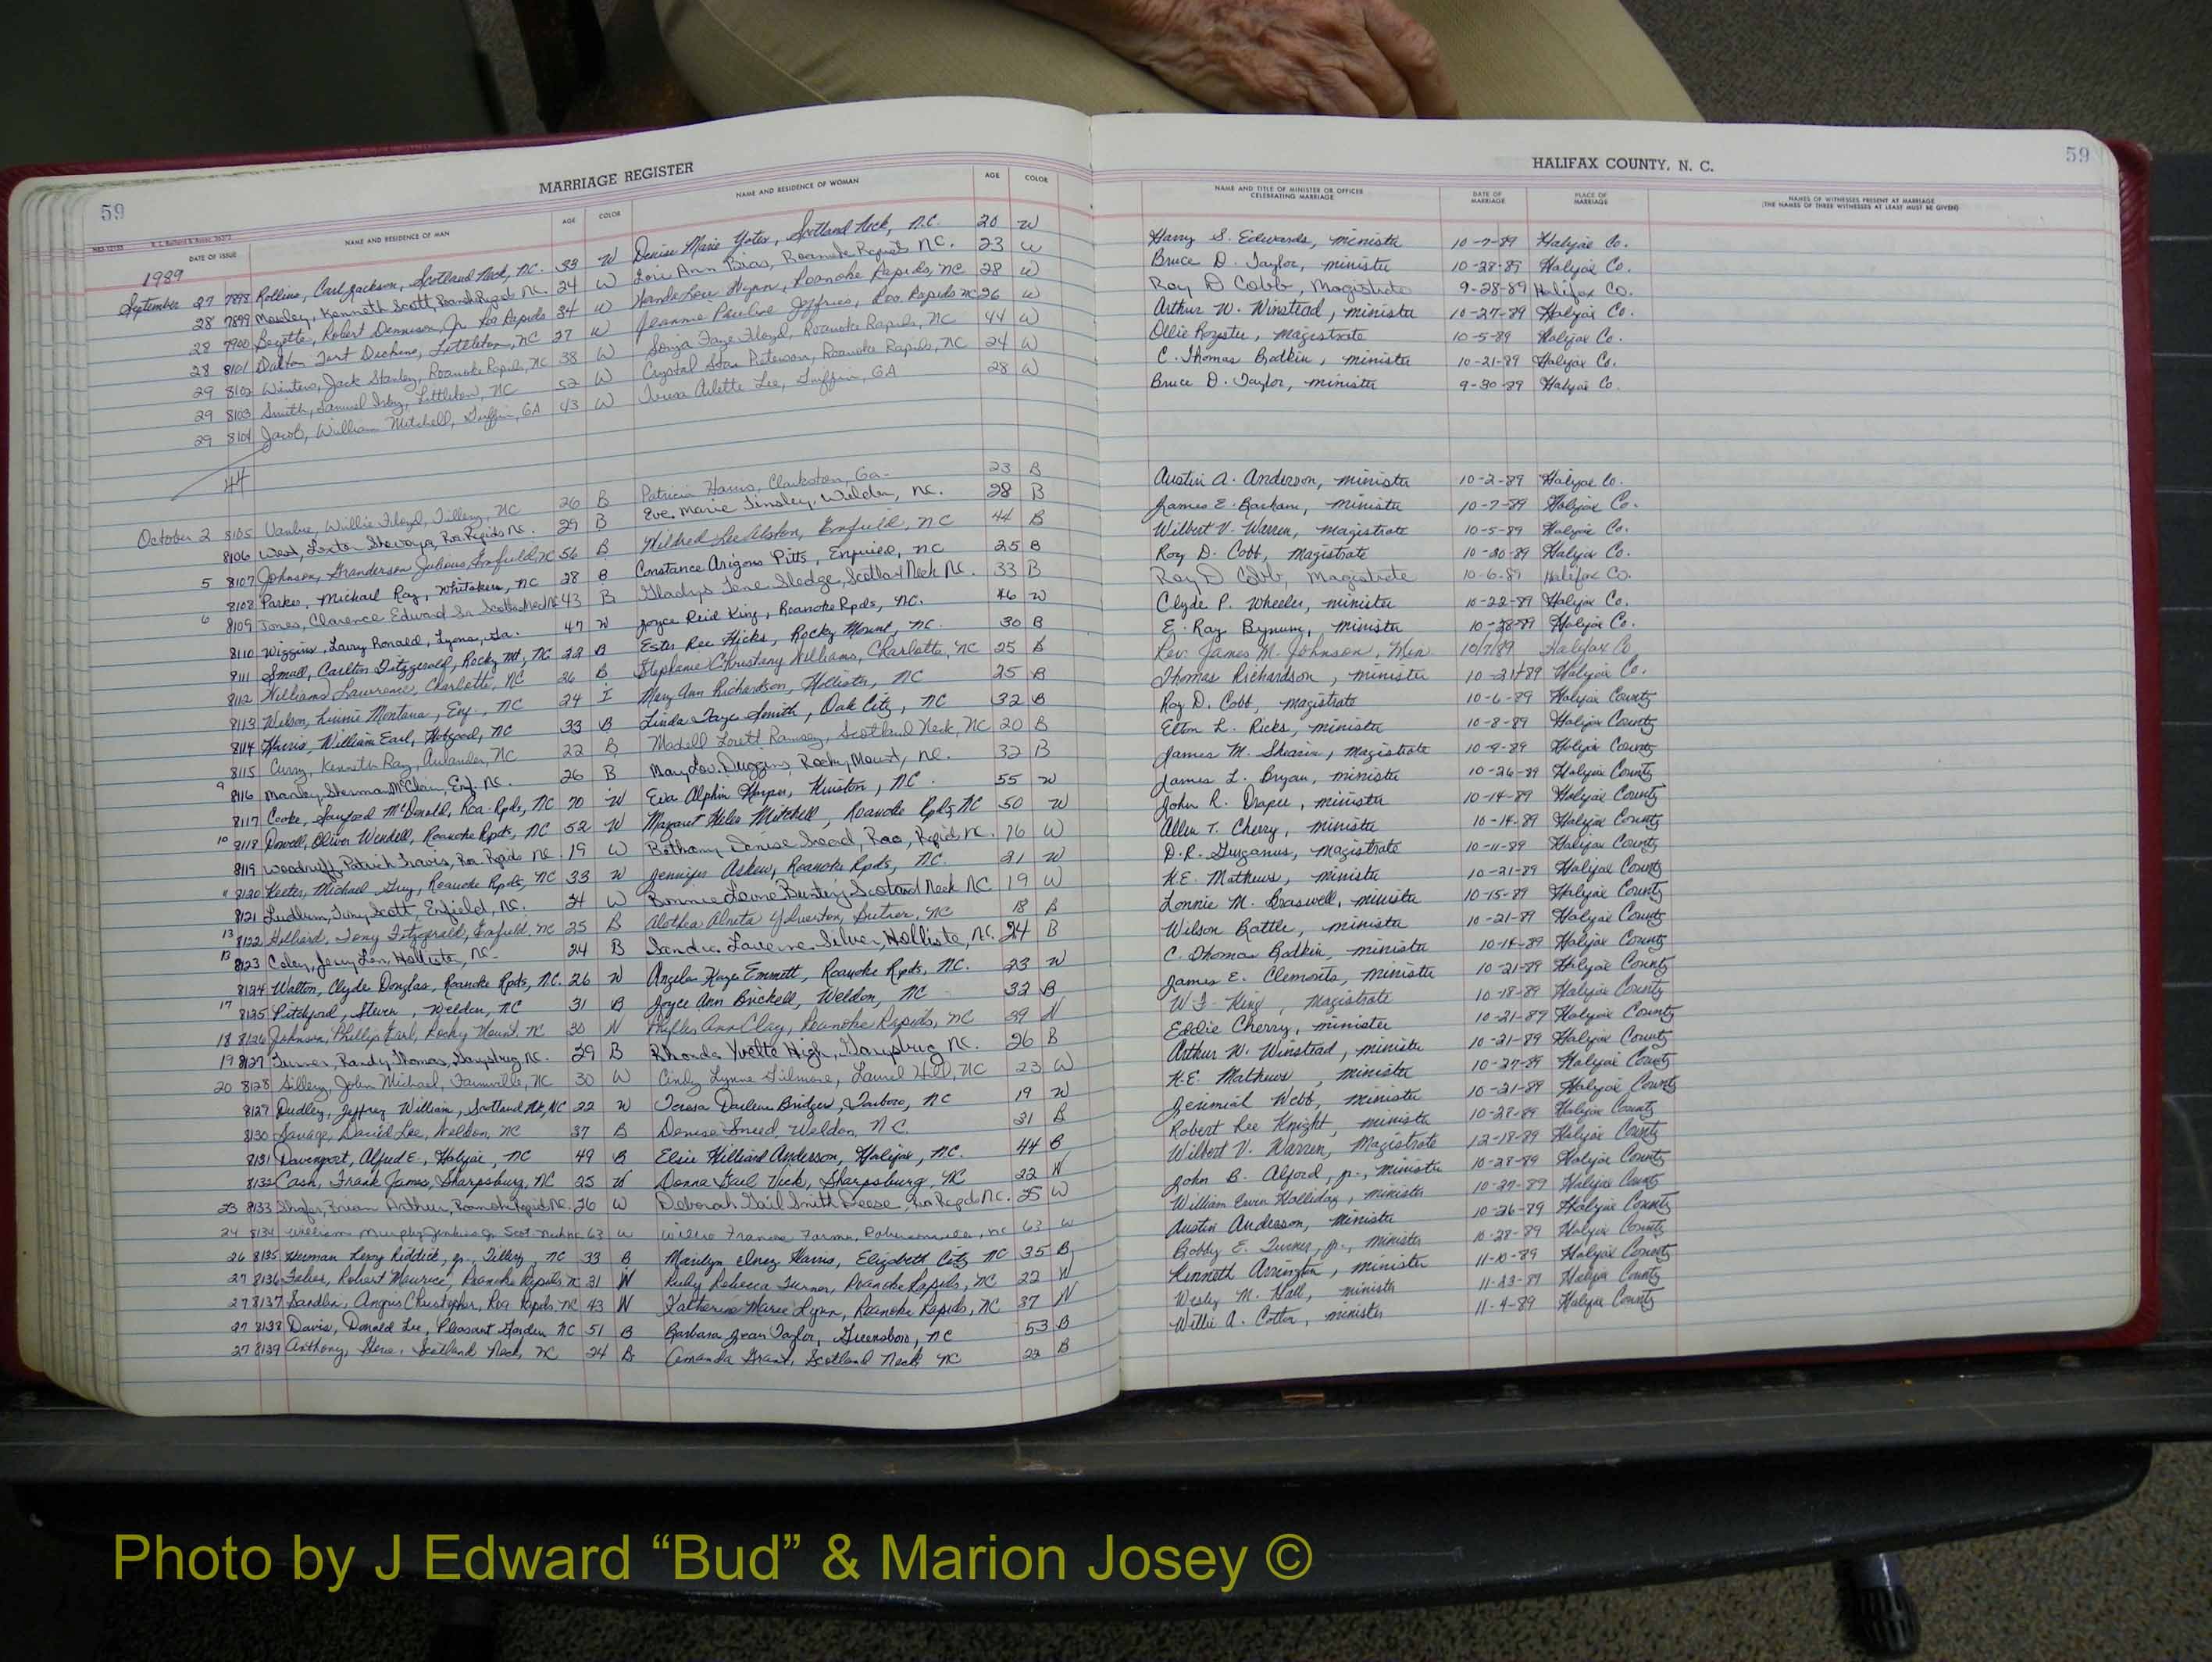 59
MARRIAGE REGISTER
HALIFAX COUNTY, N. C.
59
DATE OF ISSUE
NAME AND RESIDENCE OF MAN
AGE
COLOR
NAME AND RESIDENCE OF WOMAN
AGE
COLOR
NAME AND TITLE OF MINISTER OR OFFICER CELEBRATING MARRIAGE
DATE OF MARRIAGE
PLACE OF MARRIAGE
NAMES OF WITNESSES PRESENT AT MARRIAGE
(THE NAMES OF THREE WITNESSES AT LEAST MUST BE GIVEN)
1989
September 27 7898 Rollins, Carl Jackson, Scotland Neck, NC. 33 W Denise Marie Yates, Scotland Neck, N.C. 20 W Harry S. Edwards, minister 10-7-89 Halifax Co.
28 7899 Mosley, Kenneth Scott, NC. 24 W Lori Ann Bias, Roanoke Rapids NC. 23 W Bruce D. Taylor, minister 10-28-89 Halifax Co.
28 7900 Robert Dennison, Jr. Roa Rapids 34 W Roanoke Rapids, NC 28 W Roy D Cobb, Magistrate 9-28-89 Halifax Co.
28 8101 Dalton Littleton, NC 27 W Jeannie Pauline Jeffries, Roa Rapids NC 26 W Arthur W. Winstead, minister 10-27-89 Halifax Co.
29 8102 Winters, Jack Stanley, Roanoke Rapids, NC 38 W Sonya Faye Floyd, Roanoke Rapids, NC 44 W Ollie Royster, magistrate 10-5-89 Halifax Co.
29 8103 Smith, Samuel Littleton, NC 52 W Crystal Peterson, Roanoke Rapids, NC 24 W C. Thomas Bodkin, minister 10-21-89 Halifax Co.
29 8104 Jacob, William Mitchell, Griffin, GA 43 W Teresa Arlette Lee, Griffin, GA 28 W Bruce D. Taylor, minister 9-30-89 Halifax Co.
44
October 2 8105 Willie Floyd, Tillery, NC 26 B Patricia Harris, Clarkston, Ga- 23 B Austin A. Anderson, minister 10-2-89 Halifax Co.
8106 West, Roa Rapids NC. 29 B Eve Marie Tinsley, Weldon, NC. 28 B James E. minister 10-7-89 Halifax Co.
5 8107 Johnson, Granderson Julious, Enfield, NC 56 B Mildred Lee Alston, Enfield, NC 44 B Wilbert V. Warren, magistrate 10-5-89 Halifax Co.
8108 Parker, Michael Ray, Whitakers, NC 28 B Constance Pitts, Enfield, NC 25 B Roy D. Cobb, Magistrate 10-20-89 Halifax Co.
6 8109 Jones, Clarence Edward Sr. Scotland Neck NC 43 B Gladys Sledge, Scotland Neck NC. 33 B Roy D Cobb, Magistrate 10-6-89 Halifax Co.
8110 Wiggins, Larry Ronald, Lyons, Ga. 47 W Joyce Reid King, Roanoke Rpds, NC. 46 W Clyde P. Wheeler, minister 10-22-89 Halifax Co.
8111 Small, Carlton Fitzgerald, Rocky Mt, NC 22 B Ester Ree Hicks, Rocky Mount, NC. 30 B E. Ray Bynum, minister 10-28-89 Halifax Co.
8112 Williams, Lawrence, Charlotte, NC 26 B Stephanie Williams, Charlotte, NC 25 B Rev. James M. Johnson, Min. 10/7/89 Halifax Co
8113 Wilson, Linnie Montana, Enf., NC 24 I Mary Ann Richardson, Hollister, NC 25 B Thomas Richardson, minister Halifax Co.
8114 Harris, William Earl, Hobgood, NC 33 B Linda Faye Smith, Oak City, NC 32 B Roy D. Cobb, magistrate 10-6-89 Halifax County
8115 Curry, Kenneth Ray, Aulander, NC 22 B Lorett Ramsey, Scotland Neck, NC 20 B Elton L. Ricks, minister 10-8-89 Halifax County
9 8116 Sherman McClain, Enf. NC. 26 B Mary Lou Duggins, Rocky Mount, NC. 32 B James M. Shearin, Magistrate 10-9-89 Halifax County
8117 Cooke, Sanford McDonald, Roa. Rpds, NC 70 W Eva Alphin Harper, Kinston, NC. 55 W James L. Bryan, minister 10-26-89 Halifax County
10 8118 Powell, Oliver Wendell, Roanoke Rpds, NC 52 W Margaret Helen Mitchell, Roanoke Rpds, NC 50 W John R. Draper, minister 10-14-89 Halifax County
8119 Woodruff, Patrick Travis, Roa Rapids NC. 19 W Bethany Denise Roa. Rapids NC. 16 W Allen T. Cherry, minister 10-14-89 Halifax County
11 8120 Keeter, Michael Guy, Roanoke Rpds, NC 33 W Jennifer Askew, Roanoke Rpds, NC. 21 W D.R. Gurganus, magistrate 10-11-89 Halifax County
8121 Ludlum, Tony Scott, Enfield, NC. 24 W Bonnie Bunting, Scotland Neck NC 19 W H.E. Mathews, minister 10-21-89 Halifax County
13 8122 Hilliard, Tony Fitzgerald, Enfield, NC 25 B NC 18 B Lonnie M. Braswell, minister 10-15-89 Halifax County
13 8123 Coley, Jerry Len, Hollister, NC- 24 B Sandra Laverne Silver, Hollister, NC. 24 B Wilson Battle, minister 10-21-89 Halifax County
8124 Walton, Clyde Douglas, Roanoke Rpds, N.C. 26 W Angela Kaye Emmett, Roanoke Rpds, NC. 23 W C. Thomas Bodkin, minister 10-14-89 Halifax County
17 8125 Pitchford, Steven, Weldon, NC 31 B Joyce Ann Brickell, Weldon, NC 32 B James E. Clemonts, minister 10-21-89 Halifax County
18 8126 Johnson, Phillip Earl, Rocky Mount NC 30 W Ann Clay, Roanoke Rapids, NC 39 W King, Magistrate 10-18-89 Halifax County
19 8127 Turner, Randy Thomas, Garysburg, NC. 29 B Rhonda Yvette High, Garysburg NC. 26 B Eddie Cherry, minister 10-21-89 Halifax County
20 8128 Sillery, John Michael, Farmville, NC 30 W Cindy Lynne Gilmore, Laurel Hill, NC 23 W Arthur W. Winstead, minister 10-21-89 Halifax County
8129 Dudley, Jeffrey William, Scotland Nk, NC 22 W Teresa Darlene Bridges, Tarboro, NC 19 W H.E. Mathews, minister 10-27-89 Halifax County
8130 Savage, David Lee, Weldon, NC 37 B Denise Sneed, Weldon, N.C. 31 B Jerimiah Webb, minister 10-21-89 Halifax County
8131 Davenport, Alfred E., Halifax, NC 49 B Elsie Hilliard Anderson, Halifax, NC. 44 B Robert Lee Knight, minister 10-28-89 Halifax County
8132 Cash, Frank James, Sharpsburg, NC 25 W Donna Gail Vick, Sharpsburg, NC 22 W Wilbert V. Warren, Magistrate 12-18-89 Halifax County
23 8133 Shafer, Brian Arthur, Roanoke Rapids NC. 26 W Deborah Gail Smith Deese, Roa Rapids NC. 25 W John B. Alford, jr., minister 10-28-89 Halifax County
24 8134 William Murphy Jenkins Jr Scot. Neck NC 63 W NC 63 W William Ewen Holliday, minister 10-27-89 Halifax County
26 8135 Herman Leroy Riddick, Jr., Tillery, NC 33 B Marilyn Inez Harris, Elizabeth City NC 35 B Austin Anderson, minister 10-26-89 Halifax County
27 8136 Robert Maurice, Roanoke Rapids, NC 31 W Ruby Rebecca Turner, Roanoke Rapids, NC 22 W Bobby E. Turner, Jr., minister 10-28-89 Halifax County
27 8137 Sandlin, Angus Christopher, Roa Rapids, NC 43 W Katherine Marie Lynn, Roanoke Rapids, NC 37 W Kenneth Arrington, minister 11-10-89 Halifax County
27 8138 Davis, Donald Lee, Pleasant Garden NC 51 B Barbara Jean Taylor, Greensboro, NC 53 B Wesley M. Hall, minister Halifax County
27 8139 Anthony, Scotland Neck, NC 24 B Amanda Grant, Scotland Neck NC 22 B Willie A. Cotton, minister 11-4-89 Halifax County
Photo by J Edward “Bud” & Marion Josey ©